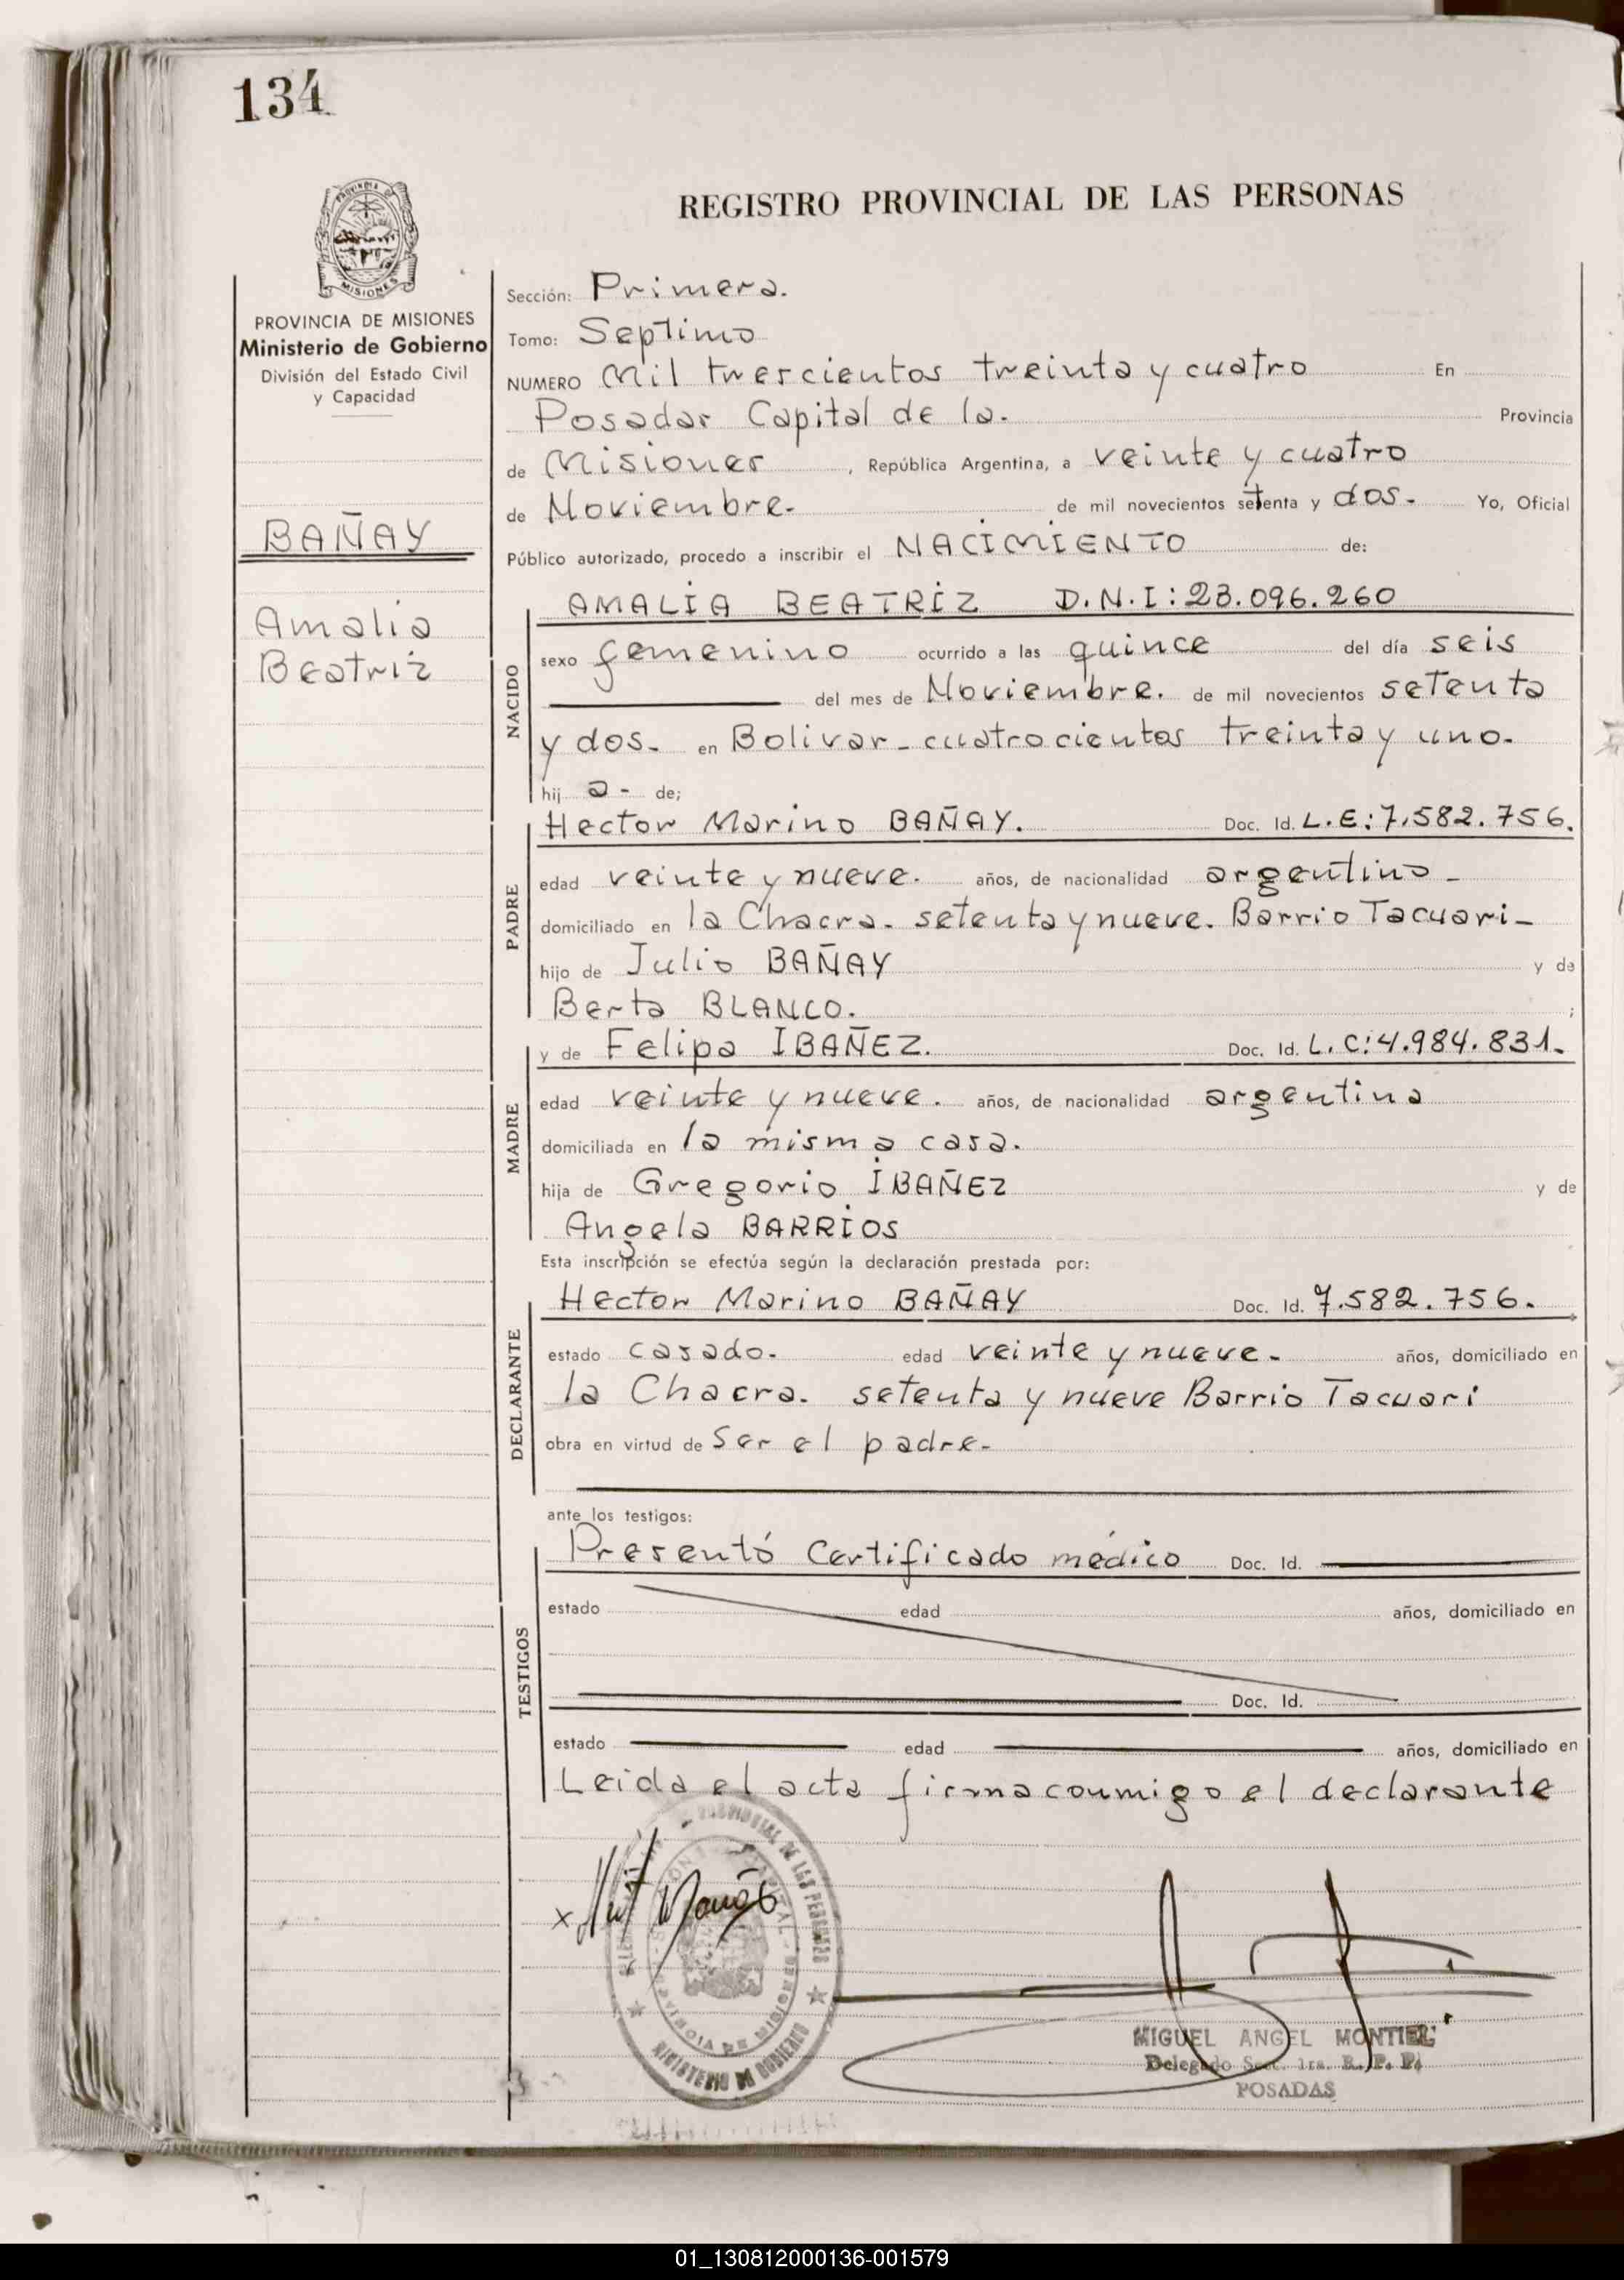 134
REGISTRO PROVINCIAL DE LAS PERSONAS
PROVINCIA DE
MISIONES
PROVINCIA DE MISIONES
Ministerio de Gobierno
División del Estado Civil
y Capacidad
BAÑAY
Amalia
Beatriz
Sección: Primera.
Tomo: Septimo
NUMERO Mil trescientos treinta y cuatro En
Posadas Capital de la. Provincia
de Misiones, República Argentina, a veinte y cuatro
de Noviembre. de mil novecientos setenta y dos. Yo, Oficial
Público autorizado, procedo a inscribir el NACIMIENTO de:
NACIDO
AMALIA BEATRIZ D.N.I: 23.096.260
sexo femenino ocurrido a las quince del día seis
del mes de Noviembre. de mil novecientos setenta
y dos. en Bolivar - cuatrocientos treinta y uno.
hij a - de;
PADRE
Hector Marino BAÑAY. Doc. Id. L.E: 7.582.756.
edad veinte y nueve. años, de nacionalidad argentino -
domiciliado en la Chacra. setenta y nueve. Barrio Tacuari -
hijo de Julio BAÑAY y de
Berta BLANCO. ;
MADRE
y de Felipa IBAÑEZ. Doc. Id. L.C: 4.984.831.
edad veinte y nueve. años, de nacionalidad argentina
domiciliada en la misma casa.
hija de Gregorio IBAÑEZ y de
Angela BARRIOS
Esta inscripción se efectúa según la declaración prestada por:
DECLARANTE
Hector Marino BAÑAY Doc. Id. 7.582.756.
estado casado. edad veinte y nueve. años, domiciliado en
la Chacra. setenta y nueve Barrio Tacuari
obra en virtud de ser el padre.
ante los testigos:
TESTIGOS
Presentó Certificado médico Doc. Id.
estado edad años, domiciliado en
Doc. Id.
estado edad años, domiciliado en
Leida el acta firma conmigo el declarante
PROVINCIAL DE LAS PERSONAS
PROVINCIA DE MISIONES
MINISTERIO DE GOBIERNO
MIGUEL ANGEL MONTIEL
Delegado Secc. 1ra. R. P. P.
POSADAS
01_130812000136-001579